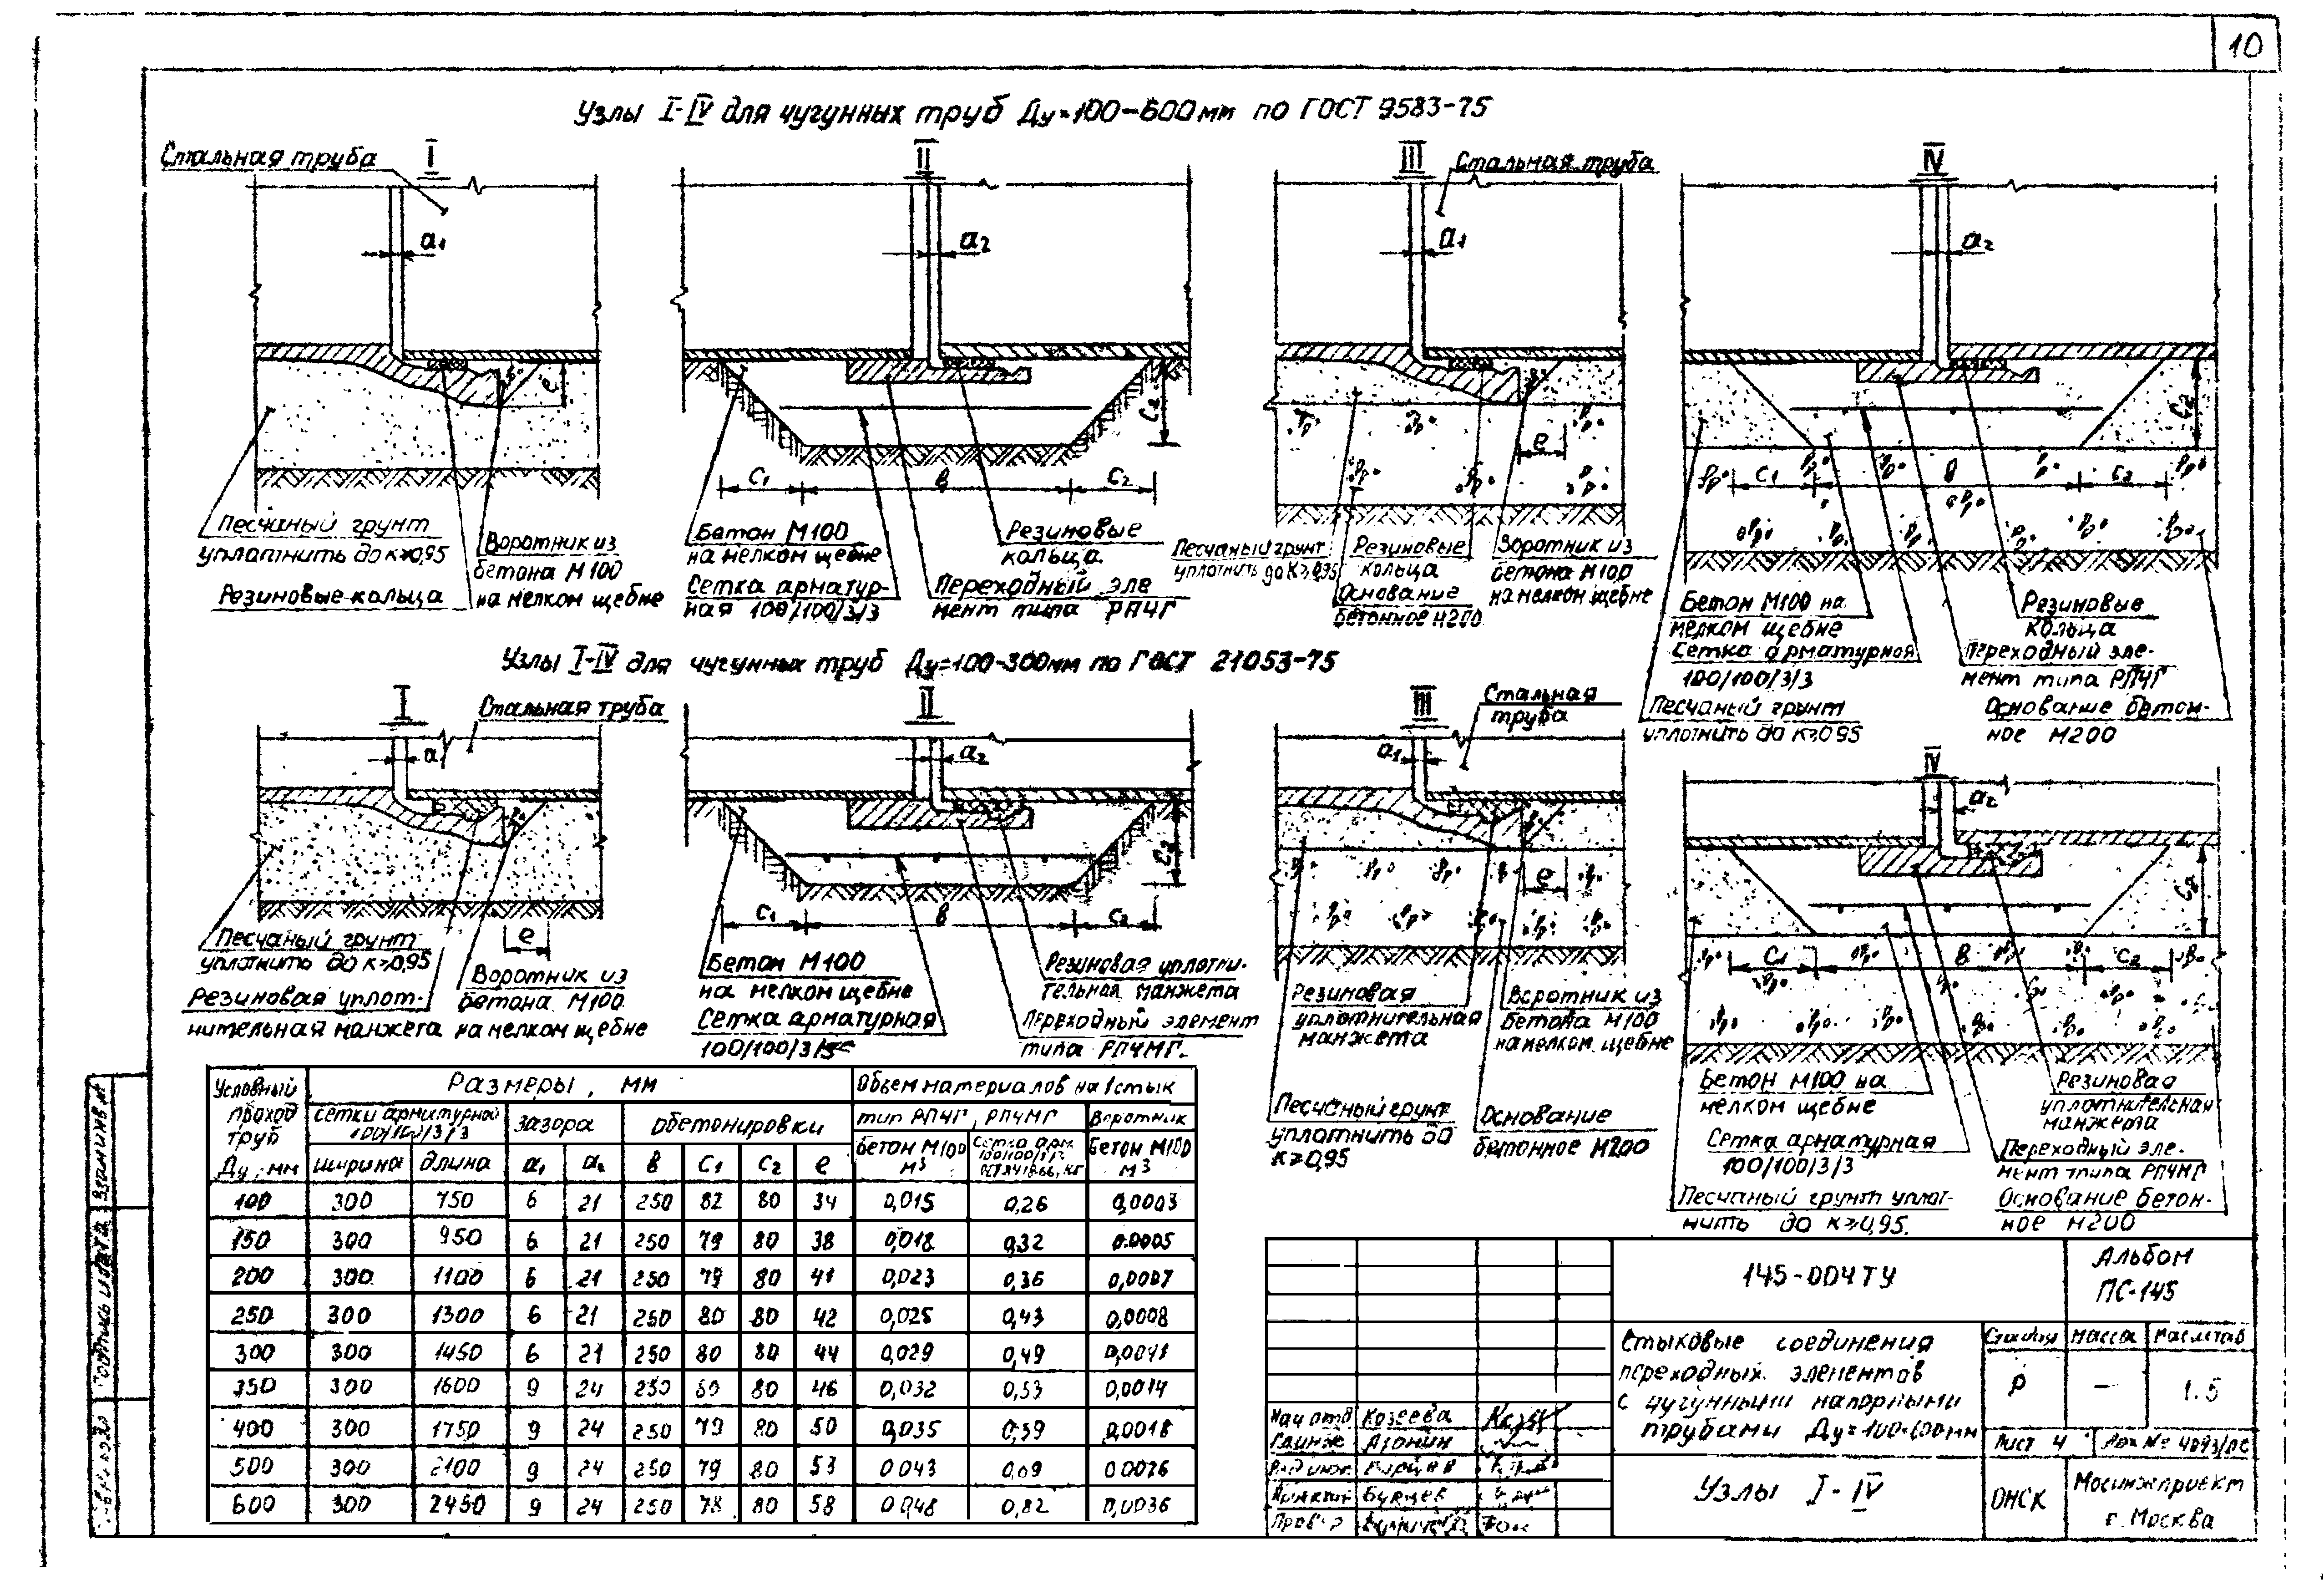 10
Узлы I-IV для чугунных труб Ду=100-600мм по ГОСТ 9583-75
Стальная труба
I
II
III
Стальная труба
IV
a1
a2
a1
a2
e
c2
e
c2
c1
в
c2
c1
в
c2
Песчаный грунт
уплотнить до к≥0,95
Резиновые кольца
Воротник из
бетона М100
на мелком щебне
Бетон М100
на мелком щебне
Сетка арматур-
ная 100/100/3/3
Резиновые
кольца
Переходный эле
мент типа РПЧГ
Песчаный грунт
уплотнить до К≥0,95
Резиновые
кольца
Основание
бетонное М200
Воротник из
бетона М100
на мелком щебне
Бетон М100 на
мелком щебне
Сетка арматурная
100/100/3/3
Песчаный грунт
уплотнить до к≥0,95
Резиновые
кольца
Переходный эле-
мент типа РПЧГ
Основание бетон-
ное М200
Узлы I-IV для чугунных труб Ду=100-300мм по ГОСТ 21053-75
I
Стальная труба
II
III
Стальная
труба
IV
a1
a2
a1
a2
c2
c2
e
c1
в
c2
e
c1
в
c2
Песчаный грунт
уплотнить до к≥0,95
Резиновая уплот-
нительная манжета
Воротник из
бетона М100
на мелком щебне
Бетон М100
на мелком щебне
Сетка арматурная
100/100/3/3
Резиновая уплотни-
тельная манжета
Переходный элемент
типа РПЧМГ.
Резиновая
уплотнительная
манжета
Воротник из
бетона М100
на мелком щебне
Песчаный грунт
уплотнить до
к≥0,95
Основание
бетонное М200
Бетон М100 на
мелком щебне
Сетка арматурная
100/100/3/3
Песчаный грунт уплот-
нить до к≥0,95.
Резиновая
уплотнительная
манжета
Переходный эле-
мент типа РПЧМГ
Основание бетон-
ное М200
Условный проход труб Ду, мм
Размеры, мм
Объем материалов на 1 стык
сетки арматурной 100/100/3/3
зазора
обетонировки
тип РПЧГ, РПЧМГ
Воротник
ширина длина a1 a2 в c1 c2 e
Бетон М100 м3
Сетка арм. 100/100/3/3
Бетон М100 м3
100 300 750 6 21 250 82 80 34 0,015 0,26 0,0003
150 300 950 6 21 250 79 80 38 0,018 0,32 0,0005
200 300 1100 6 21 250 79 80 41 0,023 0,36 0,0007
250 300 1300 6 21 250 80 80 42 0,025 0,43 0,0008
300 300 1450 6 21 250 80 80 44 0,029 0,49 0,0011
350 300 1600 9 24 250 80 80 46 0,032 0,53 0,0014
400 300 1750 9 24 250 79 80 50 0,035 0,59 0,0018
500 300 2100 9 24 250 79 80 53 0,043 0,69 0,0026
600 300 2450 9 24 250 78 80 58 0,048 0,82 0,0036
145-004ТУ
Альбом
ПС-145
Стыковые соединения
переходных элементов
с чугунными напорными
трубами Ду=100-600мм
Стадия Масса Масштаб
Р — 1:5
Лист 4
Узлы I-IV
ОНСК
Мосинжпроект
г. Москва
Нач отд Козеева
Гл инж Агонин
Провер
Подпись и дата
Взам инв №